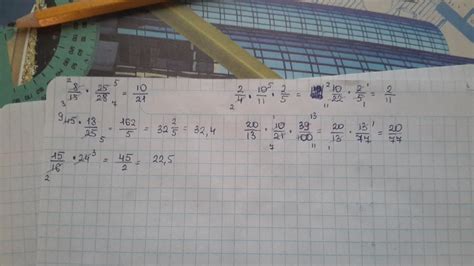 8/15 · 25/28 = 10/21
45 · 18/25 = 162/5 = 32 2/5 = 32,4
15/16 · 24 = 45/2 = 22,5
2/4 · 10/11 · 2/5 = 10/22 · 2/5 = 2/11
20/13 · 10/21 · 39/100 = 20/13 · 13/77 = 20/77